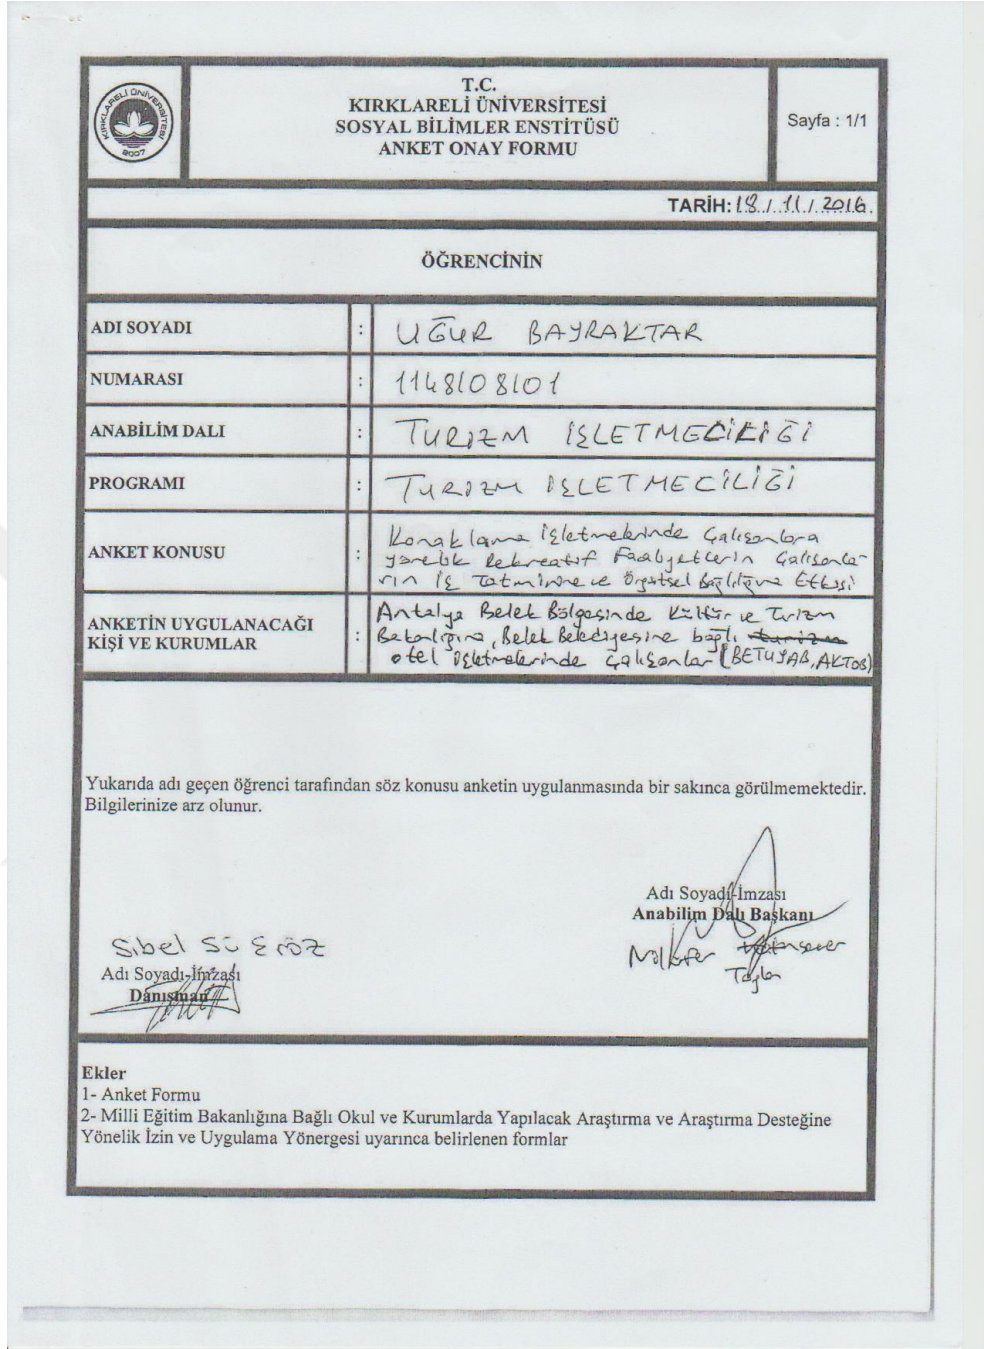 KIRKLARELİ ÜNİVERSİTESİ
2007
T.C.
KIRKLARELİ ÜNİVERSİTESİ
SOSYAL BİLİMLER ENSTİTÜSÜ
ANKET ONAY FORMU
Sayfa : 1/1
TARİH: 18 / 11 / 2016.
ÖĞRENCİNİN
ADI SOYADI : UĞUR BAYRAKTAR
NUMARASI : 1148108101
ANABİLİM DALI : TURIZM İŞLETMECİLİĞİ
PROGRAMI : TURIZM İŞLETMECİLİĞİ
ANKET KONUSU : Konaklama İşletmelerinde Çalışanlara
yönelik Rekreatif Faaliyetlerin Çalışanla-
rın İş Tatminine ve Örgütsel Bağlılığına Etkisi
ANKETİN UYGULANACAĞI
KİŞİ VE KURUMLAR : Antalya Belek Bölgesinde Kültür ve Turizm
Bakanlığına, Belek Belediyesine bağlı turizm
otel işletmelerinde çalışanlar (BETUYAB, AKTOB)
Yukarıda adı geçen öğrenci tarafından söz konusu anketin uygulanmasında bir sakınca görülmemektedir.
Bilgilerinize arz olunur.
Adı Soyadı-İmzası
Anabilim Dalı Başkanı
Sibel SÜ ERÖZ
Adı Soyadı-İmzası
Danışman
Ekler
1- Anket Formu
2- Milli Eğitim Bakanlığına Bağlı Okul ve Kurumlarda Yapılacak Araştırma ve Araştırma Desteğine
Yönelik İzin ve Uygulama Yönergesi uyarınca belirlenen formlar